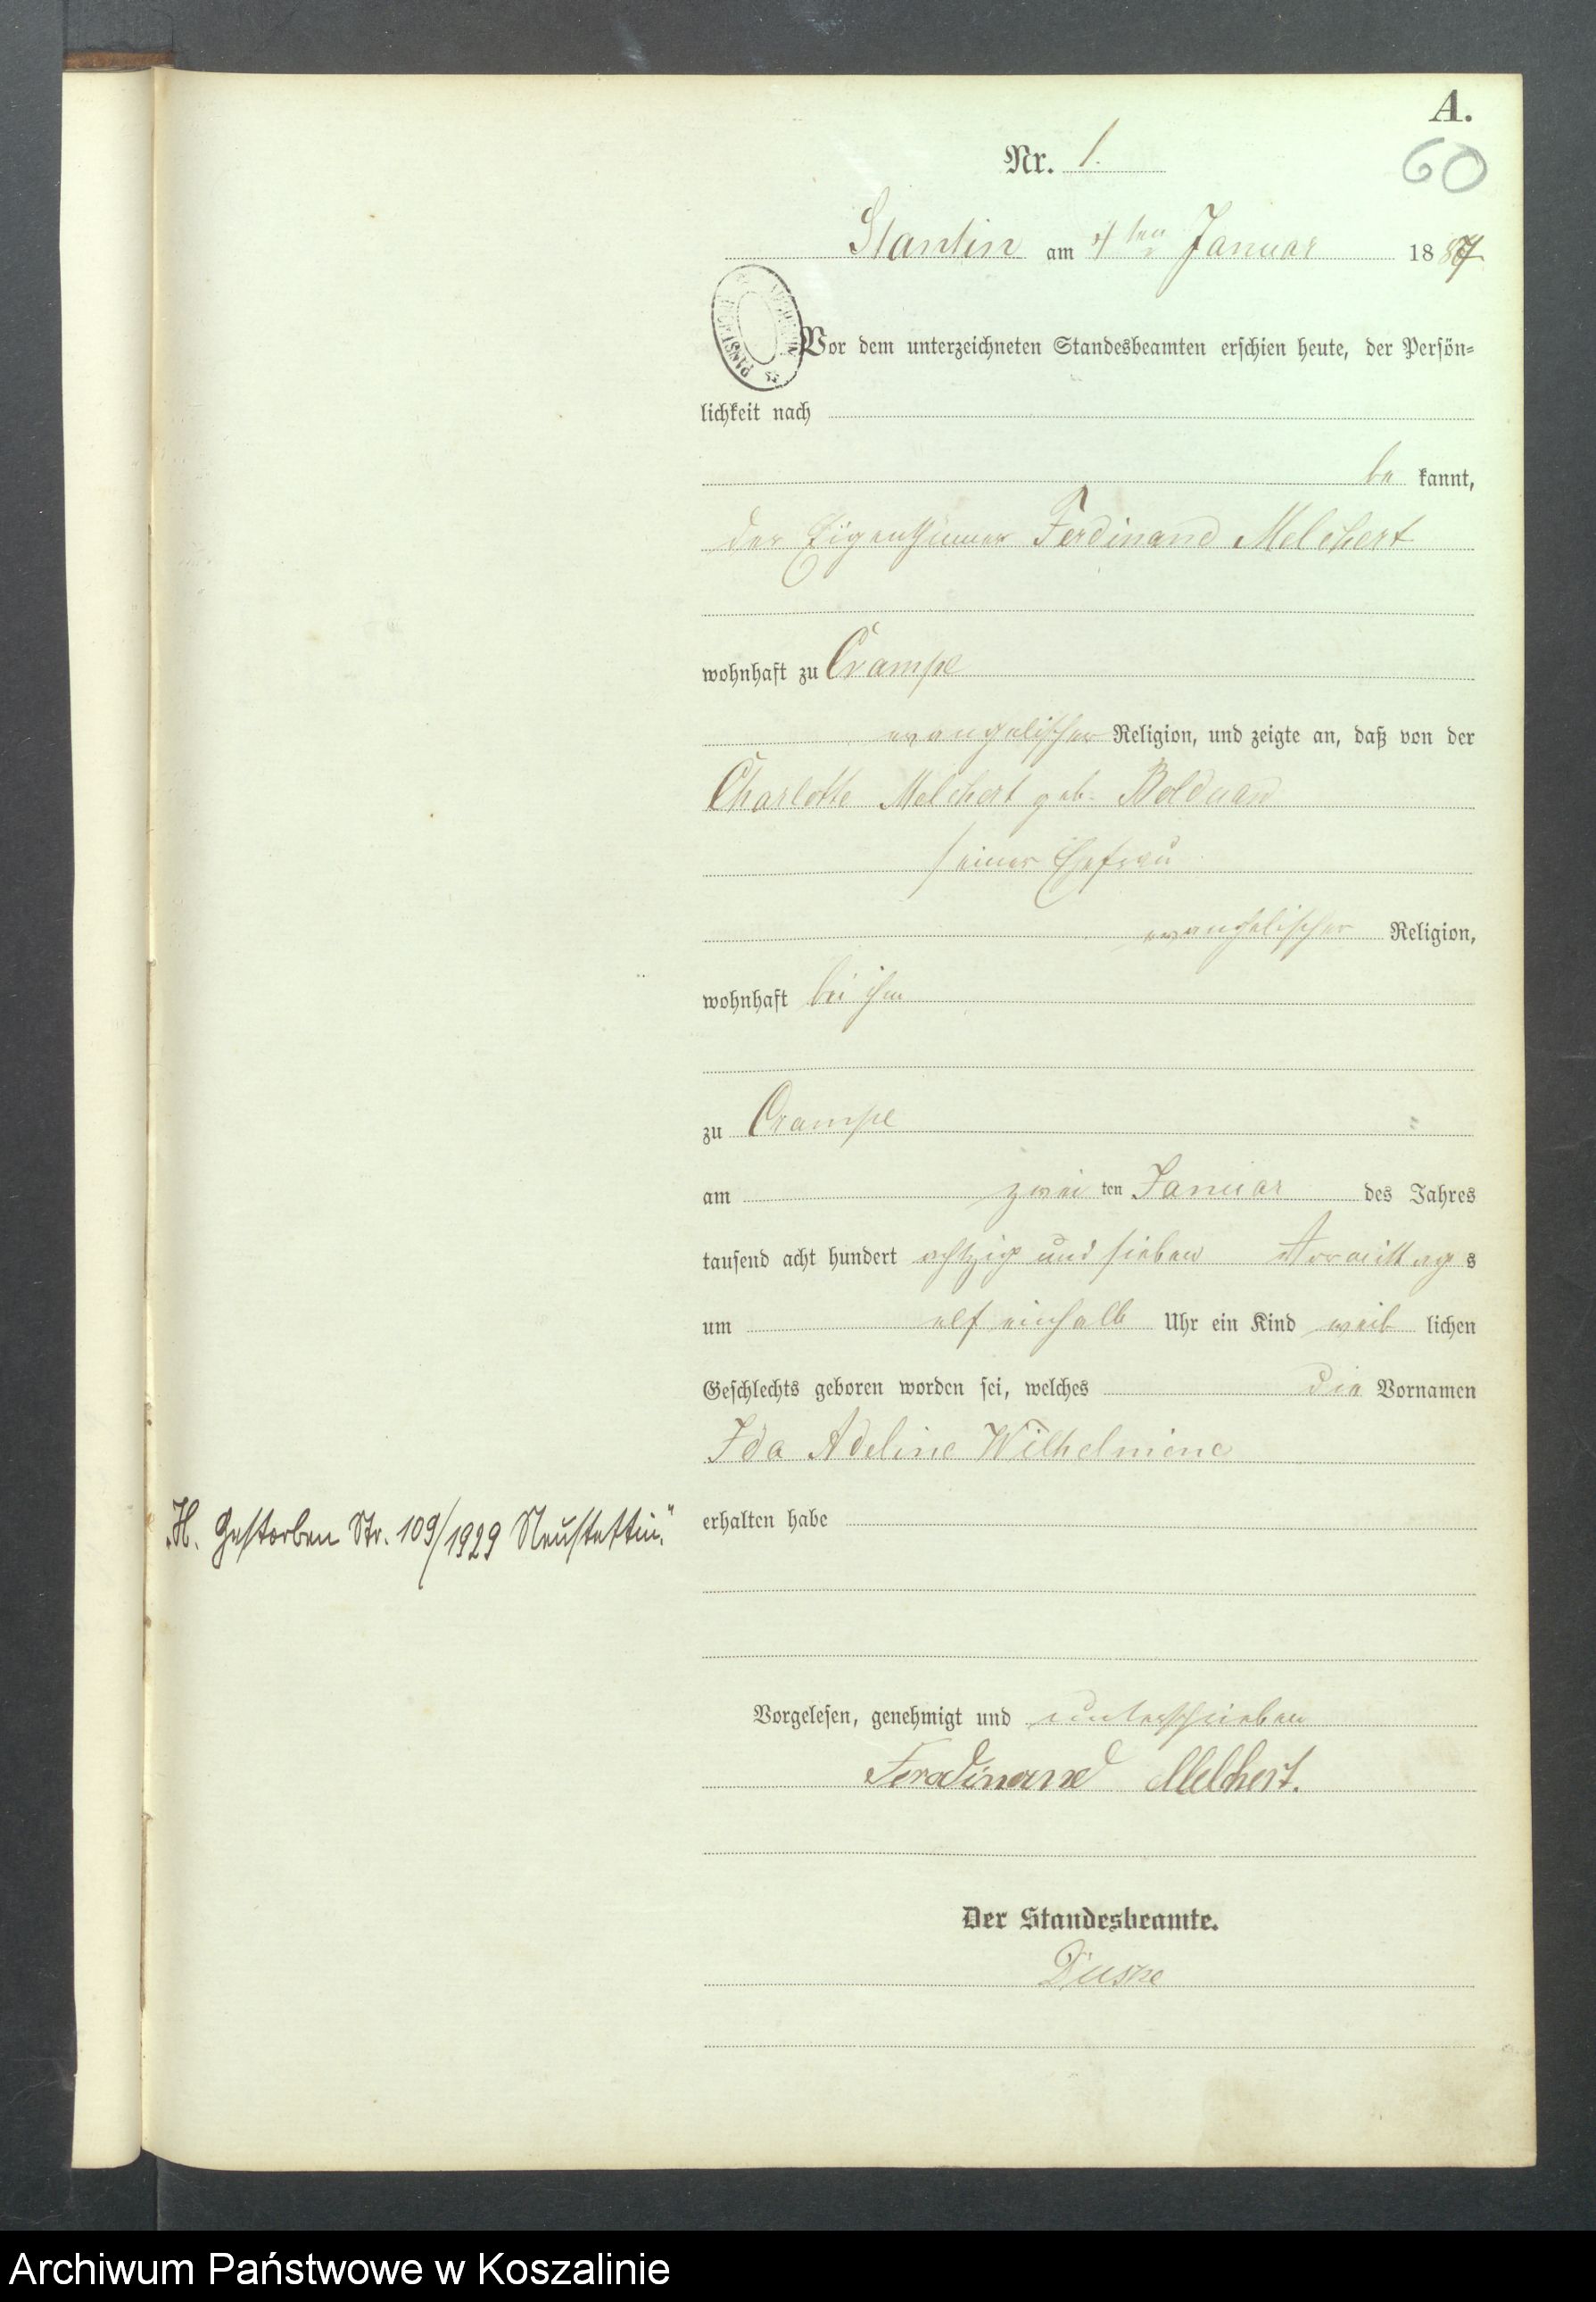 A.
Nr. 1.
60
Stantin am 4ten Januar 1887
Vor dem unterzeichneten Standesbeamten erschien heute, der Persön-
lichkeit nach
be kannt,
der Eigenthümer Ferdinand Melchert
wohnhaft zu Crampe
evangelischer Religion, und zeigte an, daß von der
Charlotte Melchert geb. Bolduan
seiner Ehefrau
evangelischer Religion,
wohnhaft bei ihm
zu Crampe
am zwei ten Januar des Jahres
tausend acht hundert achtzig und sieben Vormittag s
um elf einhalb Uhr ein Kind weib lichen
Geschlechts geboren worden sei, welches die Vornamen
Ida Adeline Wilhelmine
erhalten habe
„H. Gestorben Str. 109/1929 Neustettin."
Vorgelesen, genehmigt und unterschrieben
Ferdinand Melchert.
Der Standesbeamte.
Archiwum Państwowe w Koszalinie